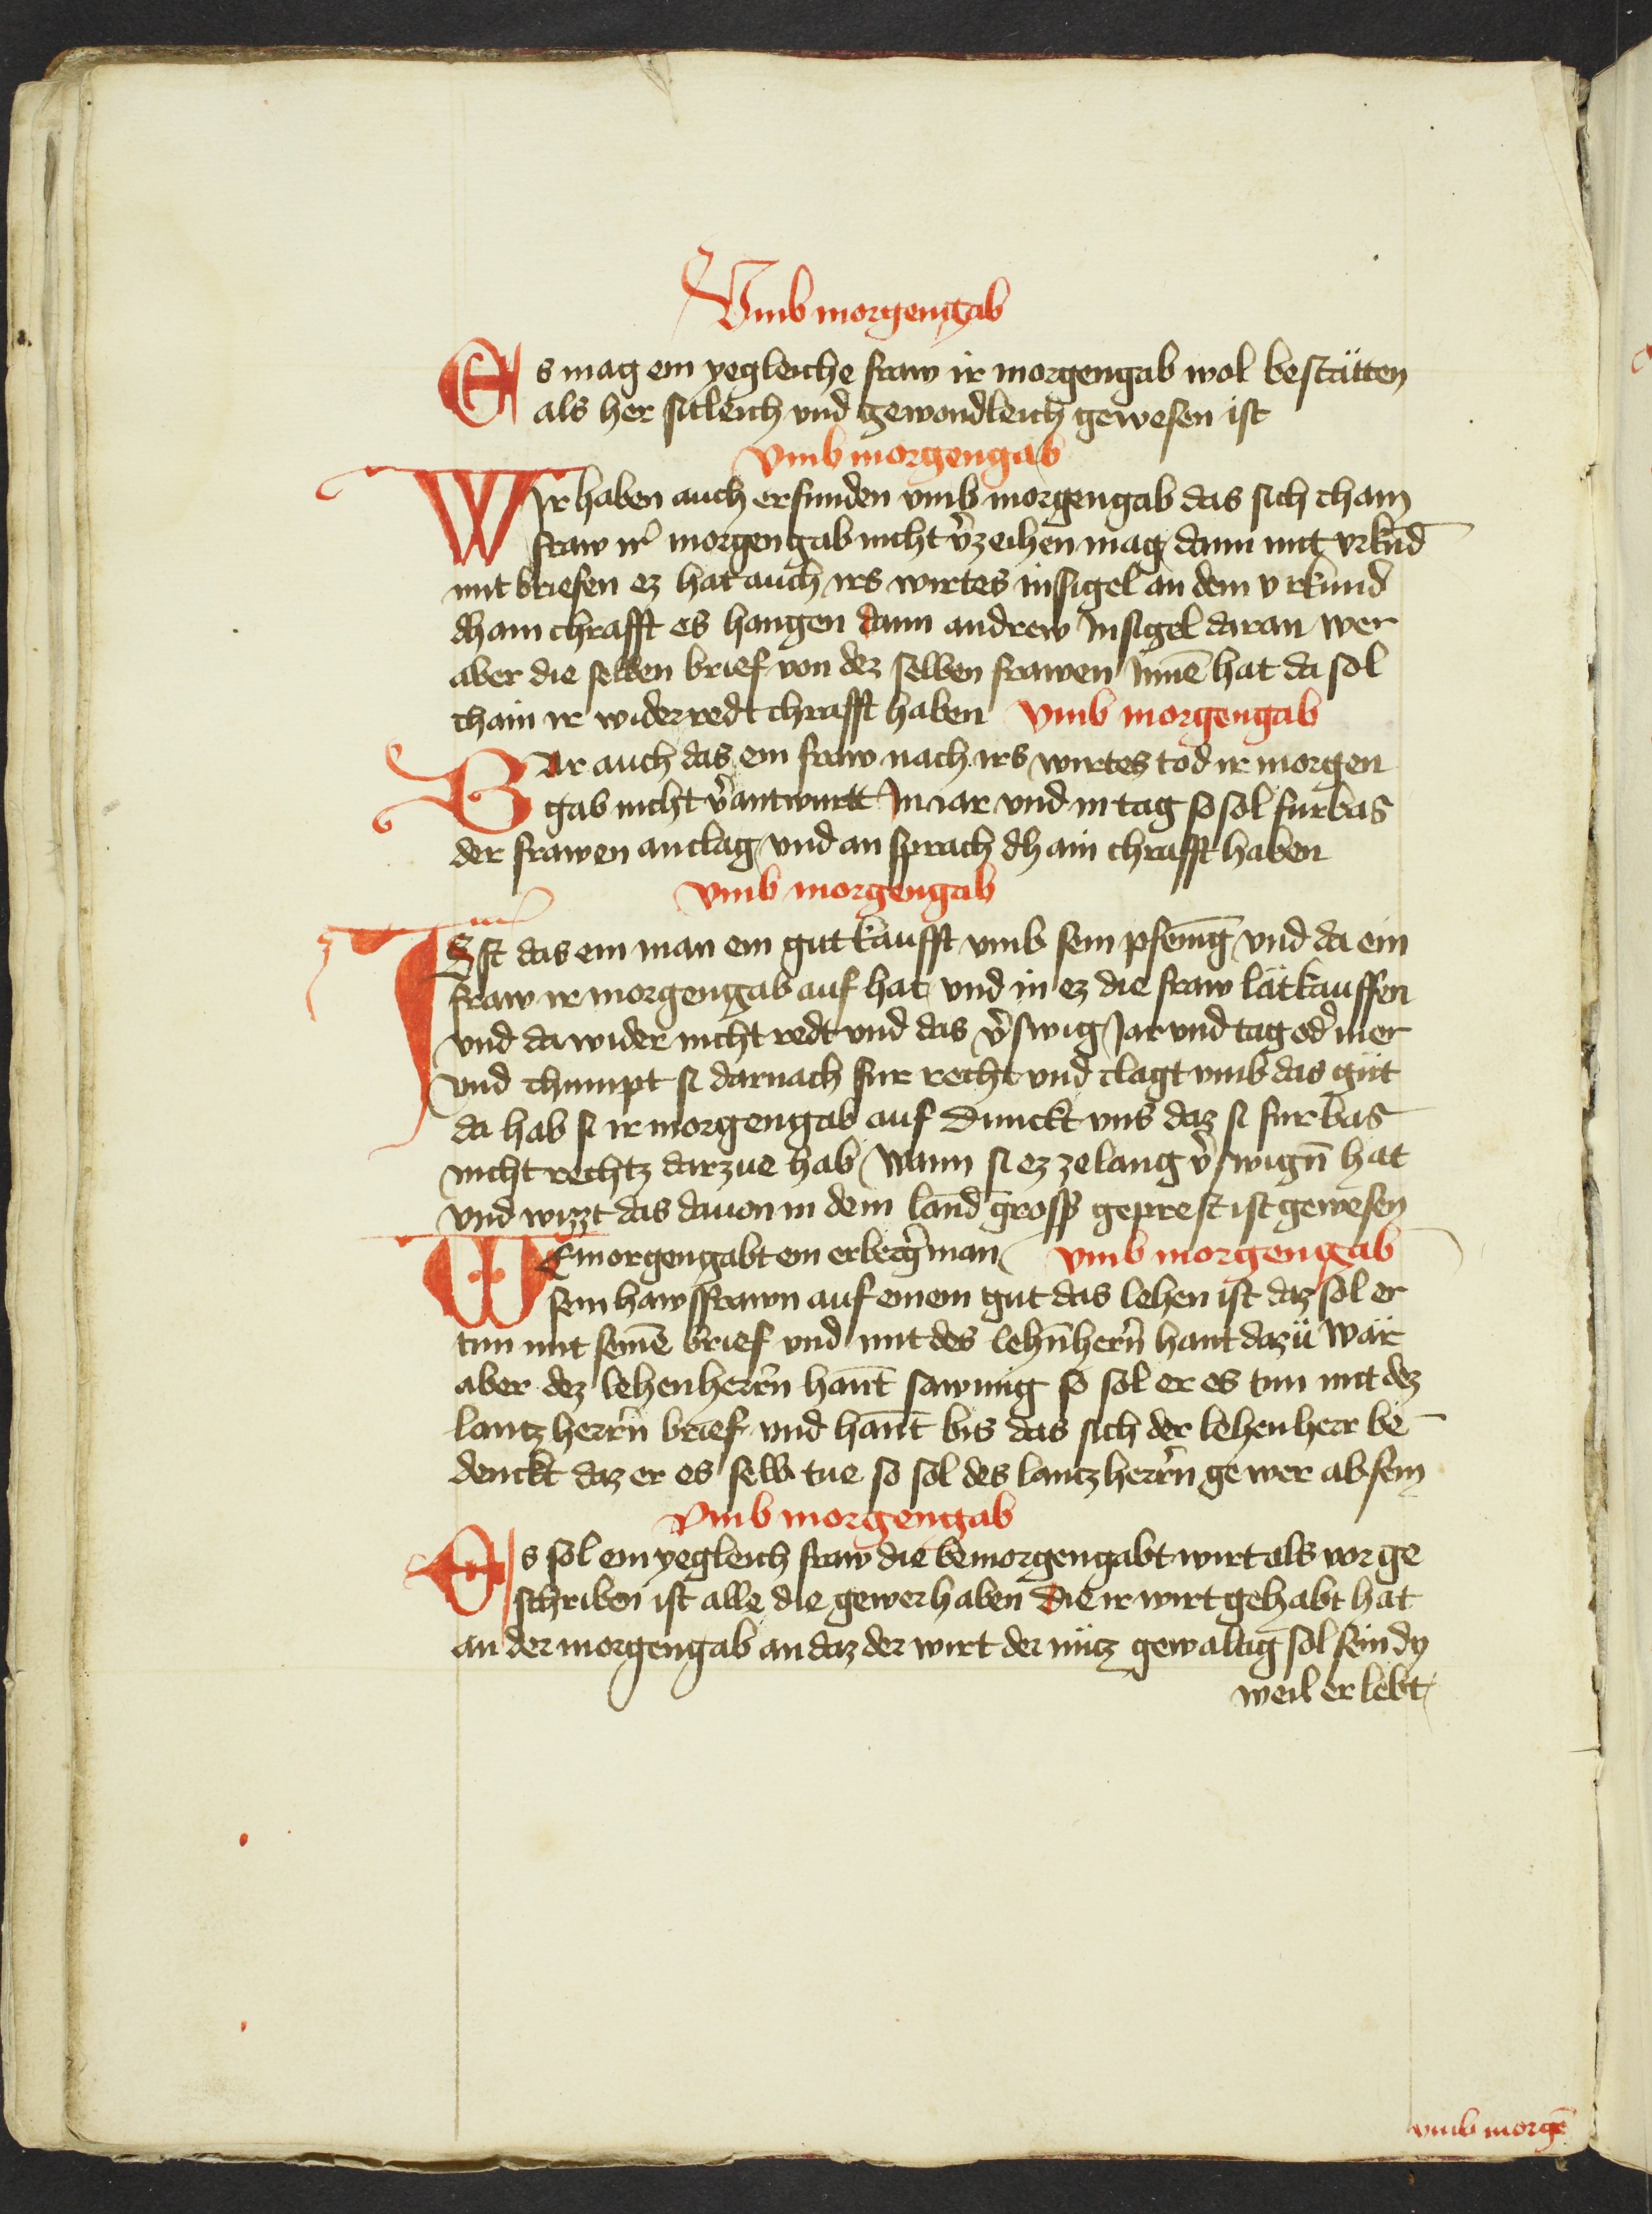 Vmb morgengab
Es mag ein yegleiche fraw ir morgengab wol bestätten
als her sitleich vnd gewondleich gewesen ist
vmb morgengab
WIr haben auch erfunden vmb morgengab das sich chain
fraw ir morgengab nicht v̂zeihen mag dann mit vrkūd
mit briefen ez hat auch irs wirtes insigel an dem vrkund
dhain chrafft es hangen dann andrew Insigel daran wer
aber die selben brief von dez selben frawen Innē hat da sol
chain ir widerredt chrafft haben vmb morgengab
WAr auch das ein fraw nach irs wirtes tod ir morgen
gab nicht v̂antwurtt In iar vnd in tag so sol furbas
der frawen anclag vnd an sprach dhain chrafft haben
vmb morgengab
ISt das ein man ein gut kaufft vmb sein pfenīg vnd da ein
fraw ir morgengab auf hat vnd in ez die fraw lät kauffen
vnd da wider nicht redt vnd das v̂swig Jar vnd tag od̂ mer
vnd chumpt si darnach fur recht vnd clagt vmb das gut
da hab si ir morgengab auf Dunckt vns daz si furbas
nicht rechtz darzue hab Wann si ez ze lang v̂swign̄ hat
vnd wizzt das dauon in dem land gross geprest ist gewesen
WEmorgengabt ein erberg̑ man vmb morgengab
sein hawsfrawn auf einem gut das lehen ist daz sol er
tun mit seinē brief vnd mit des lehn̄hern̄ hant dazü Wär
aber dez lehenherrn̄ han̄t sawmig so sol er es tun mit dez
lantzherrn̄ brief vnd han̄t bis das sich der lehenherr be
denckt daz er es selb tue so sol des lantzherrn̄ gewer ab sein
Vmb morgengab
Es sol ein yegleich fraw die bemorgengabt wirt als vor ge
schriben ist alle die gewer haben Die ir wirt gehabt hat
an der morgengab an daz der wirt der nütz gewaltig sol sein dy
weil er lebt
vmb morgē